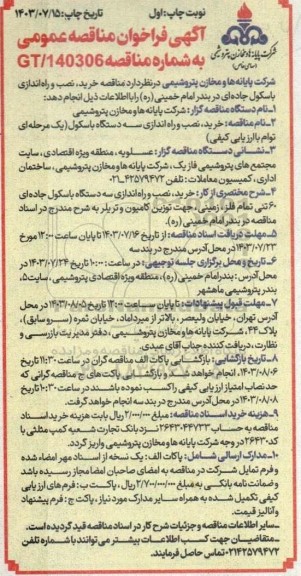 نوبت چاپ: اول
تاریخ چاپ: ۱۴۰۳/۰۷/۱۵
آگهی فراخوان مناقصه عمومی
به شماره مناقصه GT/140306
شرکت پایانه ها و مخازن پتروشیمی
شرکت پایانه ها و مخازن پتروشیمی در نظر دارد مناقصه خرید، نصب و راه اندازی
باسکول جاده ای در بندر امام خمینی (ره) را با اطلاعات ذیل انجام دهد:
۱- نام دستگاه مناقصه گزار: شرکت پایانه ها و مخازن پتروشیمی
۲- نام مناقصه: خرید، نصب و راه اندازی سه دستگاه باسکول (یک مرحله ای
توام با ارزیابی کیفی)
۳- نشانی دستگاه مناقصه گزار: عسلویه، منطقه ویژه اقتصادی، سایت
مجتمع های پتروشیمی فاز یک، شرکت پایانه ها و مخازن پتروشیمی، ساختمان
اداری، کمیسیون معاملات: تلفن ۰۲۱-۴۲۵۷۹۴۷۲
۴- شرح مختصری از کار: خرید، نصب و راه اندازی سه دستگاه باسکول جاده ای
۶۰ تنی تمام فلز، زمینی، جهت توزین کامیون و تریلر به شرح مندرج در اسناد
مناقصه در بندر امام خمینی (ره).
۵- مهلت دریافت اسناد مناقصه: از تاریخ ۱۴۰۳/۰۷/۱۶ تا پایان ساعت ۱۲:۰۰ مورخ
۱۴۰۳/۰۷/۲۳ در محل آدرس مندرج در بند سه
۶- تاریخ و محل برگزاری جلسه توجیهی: در ساعت: ۱۰:۰۰ تاریخ ۱۴۰۳/۰۷/۲۴ در
محل آدرس: بندر امام خمینی (ره)، منطقه ویژه اقتصادی پتروشیمی، سایت ۵،
بندر پتروشیمی ماهشهر
۷- مهلت قبول پیشنهادات: تا پایان ساعت ۱۲:۰۰ تاریخ ۱۴۰۳/۰۸/۰۵ در محل
آدرس تهران، خیابان ولیعصر، بالاتر از میرداماد، خیابان ثمره (سرو سابق)،
پلاک ۴۴، شرکت پایانه ها و مخازن پتروشیمی، دفتر مدیریت بازرسی و
نظارت، دریافت کننده جناب آقای عبدی.
۸- تاریخ بازگشایی: بازگشایی پاکات الف مناقصه گران در ساعت ۱۱:۳۰ تاریخ
۱۴۰۳/۰۸/۰۶، انجام خواهد شد و بازگشایی پاکات های ج مناقصه گرانی که
حد نصاب امتیاز ارزیابی کیفی را کسب نموده باشند در ساعت ۱۰:۳۰ تاریخ
۱۴۰۳/۰۸/۰۸ در محل آدرس مندرج در بند سه انجام خواهد گرفت.
۹- هزینه خرید اسناد مناقصه: مبلغ ۲/۰۰۰/۰۰۰ ریال بابت هزینه خرید اسناد
مناقصه به حساب ۲۶۴۳-۴۴۷۳۳ نزد بانک تجارت شعبه کمپ مثلثی با
کد ۲۶۴۳ در وجه شرکت پایانه ها و مخازن پتروشیمی واریز گردد.
۱۰- مدارک ارسالی شامل: پاکات: الف: یک نسخه از اسناد مهر امضاء شده
و فرم تمایل شرکت در مناقصه به امضای صاحبان امضا مجاز رسیده باشد
و ضمانت نامه بانکی به مبلغ ۲/۷۰۰/۰۰۰/۰۰۰ ریال، پاکت ب: فرم های ارزیابی
کیفی تکمیل شده به همراه سایر مدارک مورد نیاز، پاکت ج: فرم پیشنهاد
و آنالیز قیمت.
ـ سایر اطلاعات مناقصه و جزئیات شرح کار در اسناد مناقصه قید گردیده است.
ـ متقاضیان جهت کسب اطلاعات بیشتر می توانند با شماره تلفن
۰۲۱۴۲۵۷۹۴۷۲ تماس حاصل فرمایند.